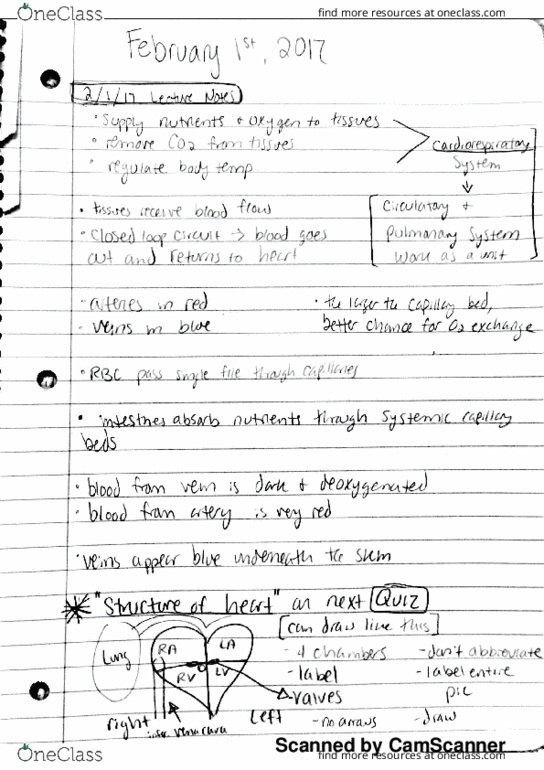 OneClass
find more resources at oneclass.com
February 1st, 2017
2/1/17 Lecture Notes
• Supply nutrients + oxygen to tissues
• remove CO2 from tissues
• regulate body temp
Cardiorespiratory
System
• tissues receive blood flow
• Closed loop circuit → blood goes
out and returns to heart
Circulatory +
Pulmonary System
work as a unit
• arteries in red
• veins in blue
• the larger the capillary bed,
better chance for O2 exchange
• RBC pass single file through capillaries
• intestines absorb nutrients through systemic capillary
beds
• blood from vein is dark + deoxygenated
• blood from artery is very red
• veins appear blue underneath the skin
"Structure of heart" on next Quiz
[can draw like this]
Lung
RA
LA
RV
LV
right
left
infer. vena cava
valves
- 4 chambers
- label
- no arrows
- don't abbreviate
- label entire
pic
- draw
Scanned by CamScanner
OneClass
find more resources at oneclass.com